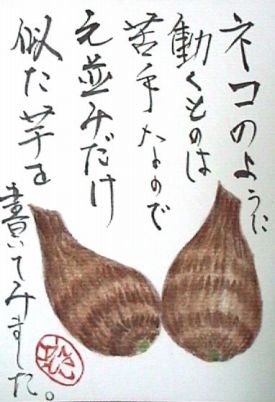 ネコのように
動くものは
苦手なので
毛並みだけ
似た芋を
書いてみました。